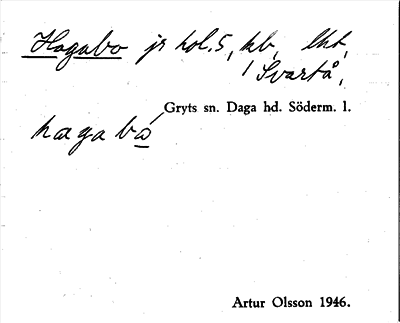 Hagabo jr kol. 5, kb, lht,
/ Svartå,
Gryts sn. Daga hd. Söderm. l.
hagabó
Artur Olsson 1946.